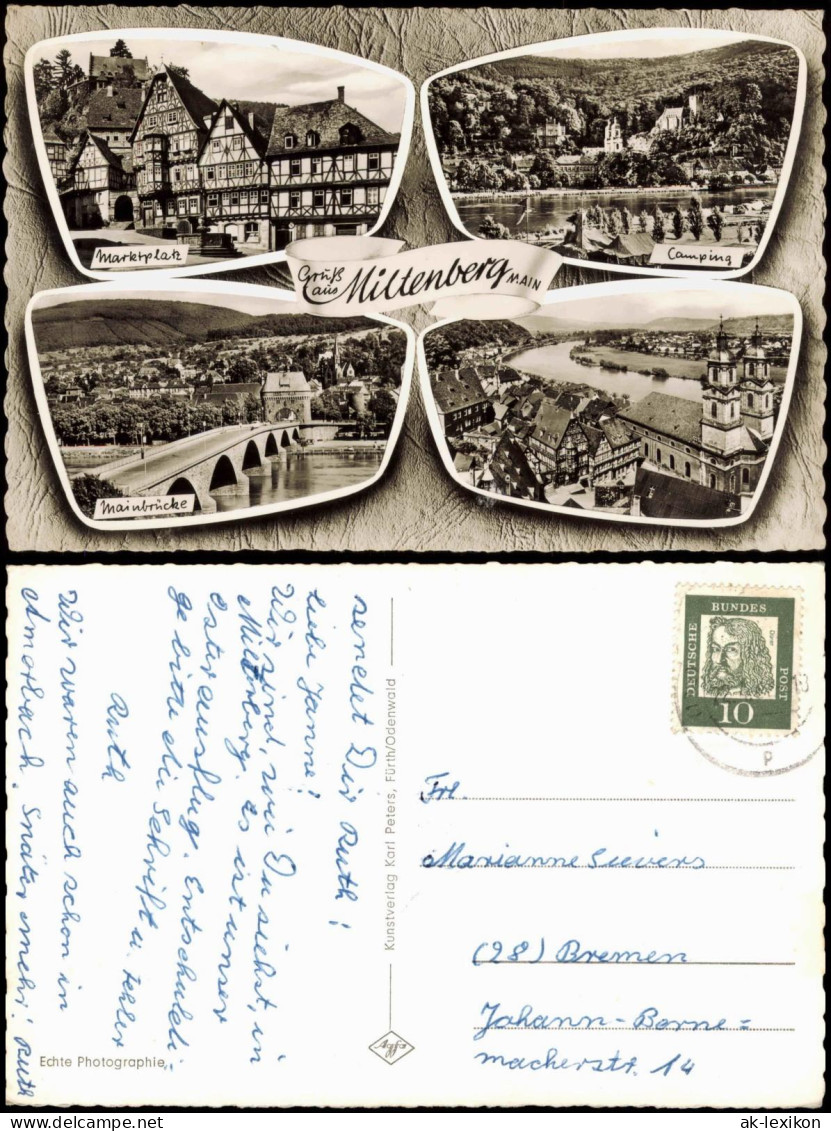 Marktplatz
Camping
Gruß
aus Miltenberg MAIN
Mainbrücke
sendet Dir Ruth!
liebe Janne!
Wir sind, wie Du siehst, in
Miltenberg. Es ist unser
Osterausflug. Entschuldi-
ge bitte die Schrift u. Fehler
Ruth
Wir waren auch schon in
Amorbach. Später mehr! Ruth
Echte Photographie
Kunstverlag Karl Peters, Fürth/Odenwald
Agfa
DEUTSCHE
BUNDES
POST
Dürer
10
p
Frl.
Marianne Sievers
(28) Bremen
Johann-Borne=
macherstr. 14
www.ansichtskarten-lexikon.de
ak-lexikon